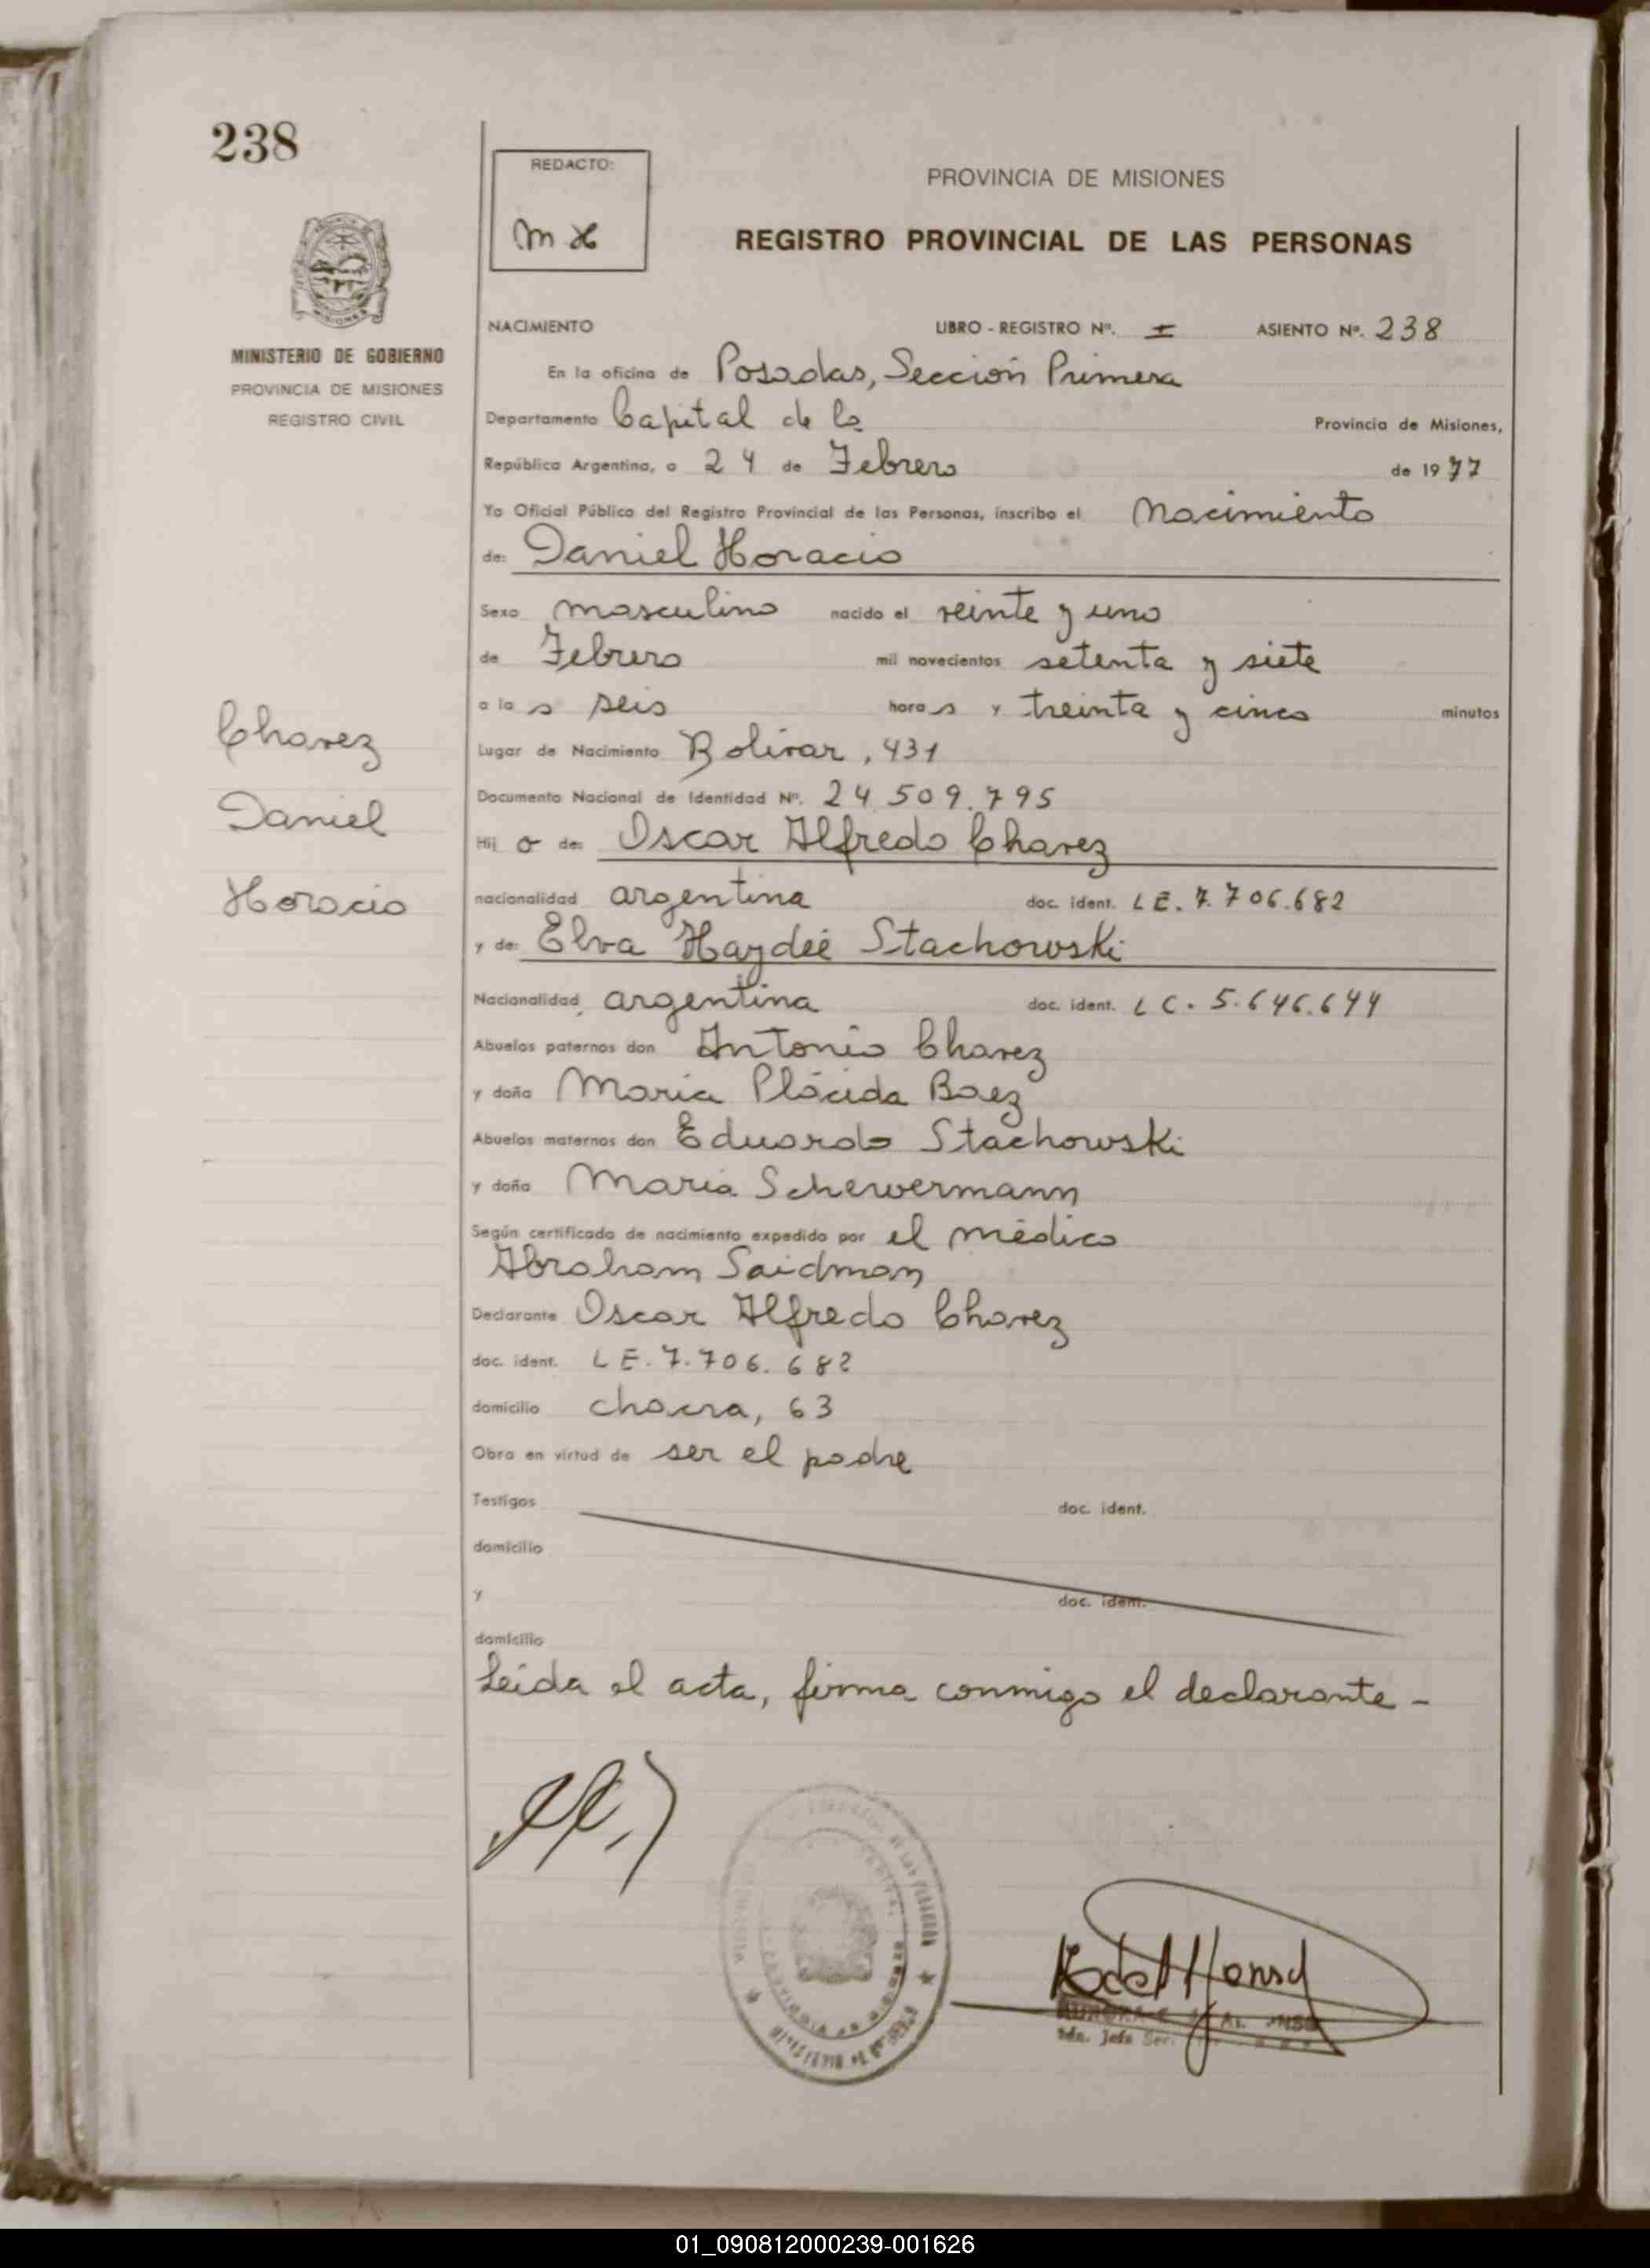 238
REDACTO:
MH
PROVINCIA DE MISIONES
REGISTRO PROVINCIAL DE LAS PERSONAS
MINISTERIO DE GOBIERNO
PROVINCIA DE MISIONES
REGISTRO CIVIL
NACIMIENTO LIBRO - REGISTRO Nº. I ASIENTO Nº. 238
En la oficina de Posadas, Sección Primera
Departamento Capital de la Provincia de Misiones,
República Argentina, a 24 de Febrero de 1977
Yo Oficial Público del Registro Provincial de las Personas, inscribo el Nacimiento
de: Daniel Horacio
Sexo masculino nacido el veinte y uno
de Febrero mil novecientos setenta y siete
a las seis horas y treinta y cinco minutos
Lugar de Nacimiento Bolivar, 431
Documento Nacional de Identidad Nº. 24.509.795
Hijo de: Oscar Alfredo Chavez
nacionalidad argentina doc. ident. LE. 7.706.682
y de: Elva Haydeé Stachowski
Nacionalidad argentina doc. ident. LC. 5.646.644
Abuelos paternos don Antonio Chavez
y doña Maria Plácida Baez
Abuelos maternos don Eduardo Stachowski
y doña Maria Schewermann
Según certificado de nacimiento expedido por el médico
Abraham Saidman
Declarante Oscar Alfredo Chavez
doc. ident. LE. 7.706.682
domicilio chacra, 63
Obra en virtud de ser el padre
Testigos doc. ident.
domicilio
y doc. ident.
domicilio
Leída el acta, firma conmigo el declarante -
Chavez
Daniel
Horacio
01_090812000239-001626